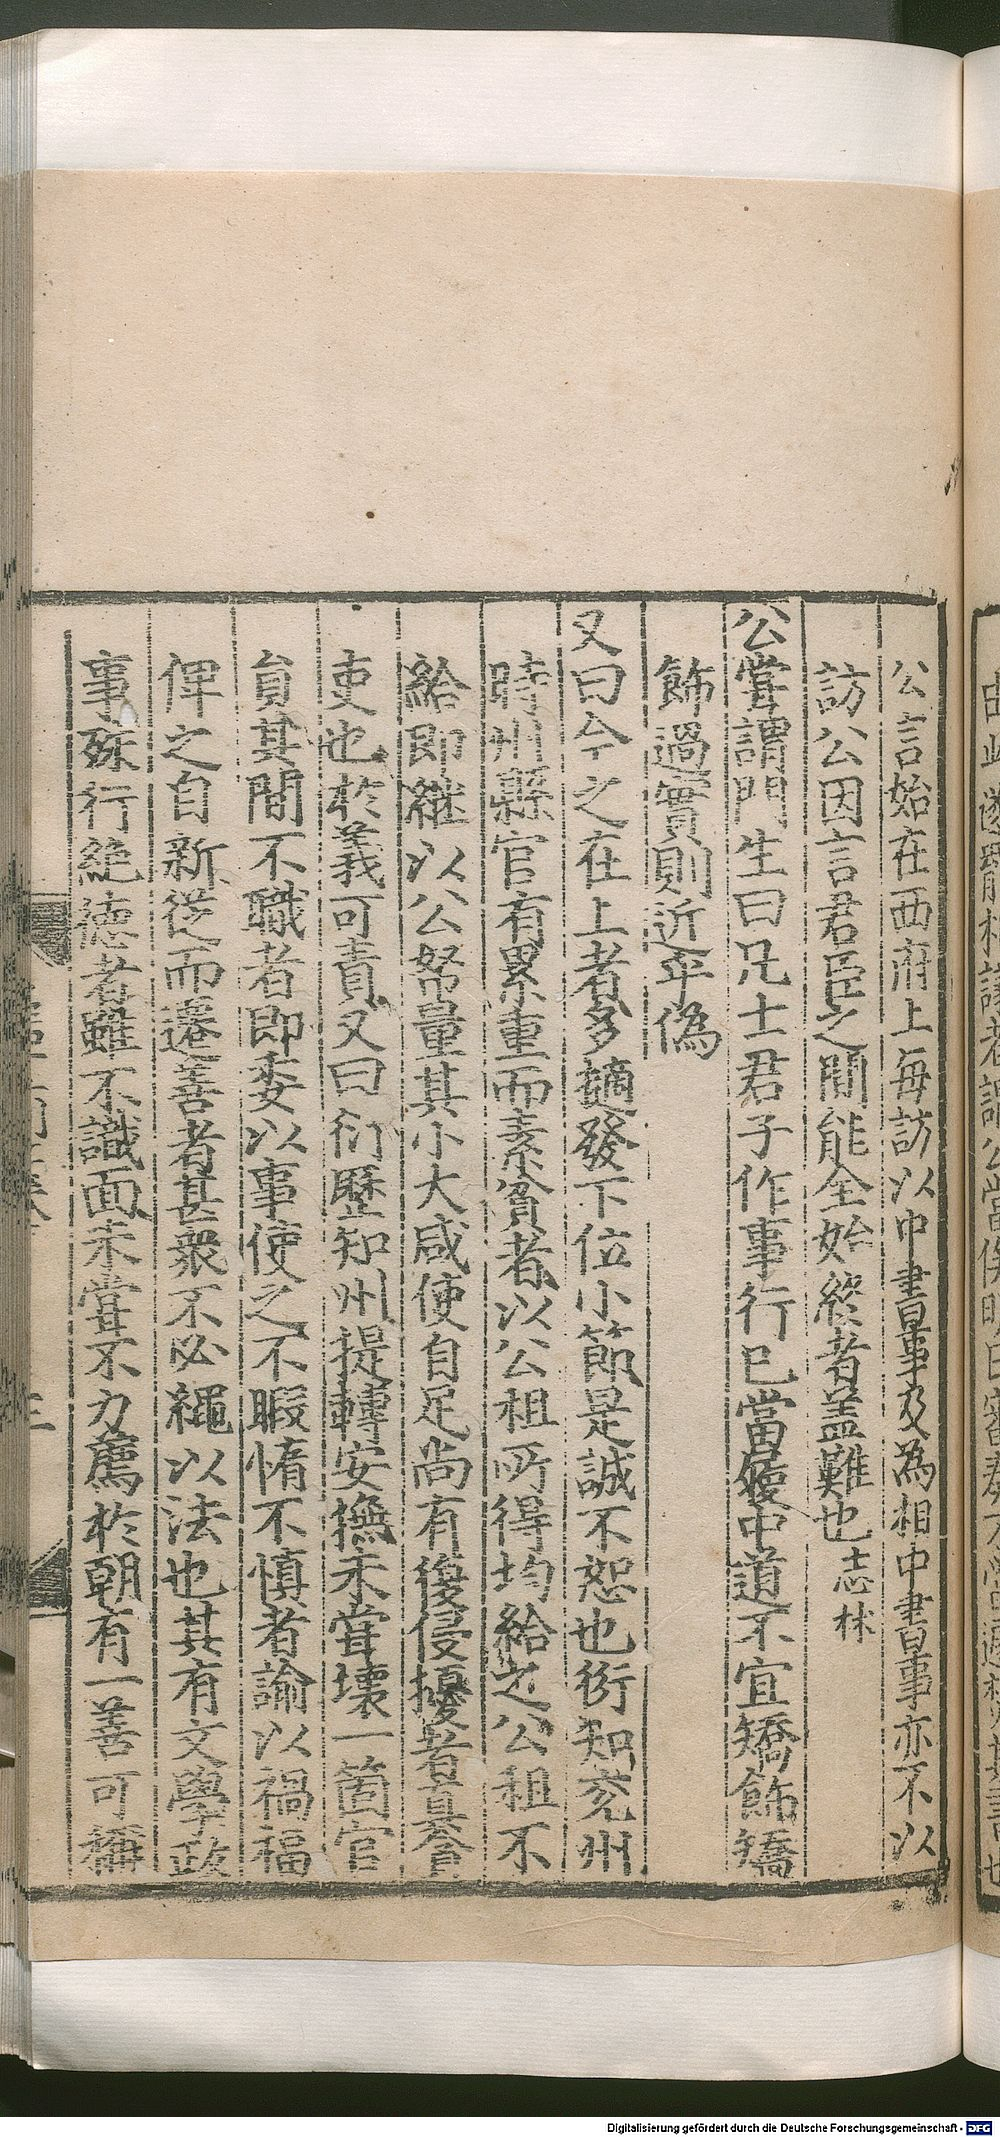 公言始在西府上每訪以中書事及為相中書事亦不以
訪公因言君臣之間能全始終者盖難也志林
公甞謂門生曰凡士君子作事行已當履中道不宜矯飾矯
飾過實則近乎偽
又曰今之在上者多擿發下位小節是誠不恕也衍知兖州
時州縣官有累重而素貧者以公租所得均給之公租不
給即継以公帑量其小大咸使自足尚有復侵擾者真貪
吏也於義可責又曰衍歷知州提轉安撫未甞壊一箇官
貟其間不職者即委以事使之不暇惰不慎者諭以禍福
俾之自新従而遷善者甚衆不必繩以法也其有文學政
事殊行絶德者雖不識面未甞不力薦於朝有一善可稱
三
Digitalisierung gefördert durch die Deutsche Forschungsgemeinschaft - DFG